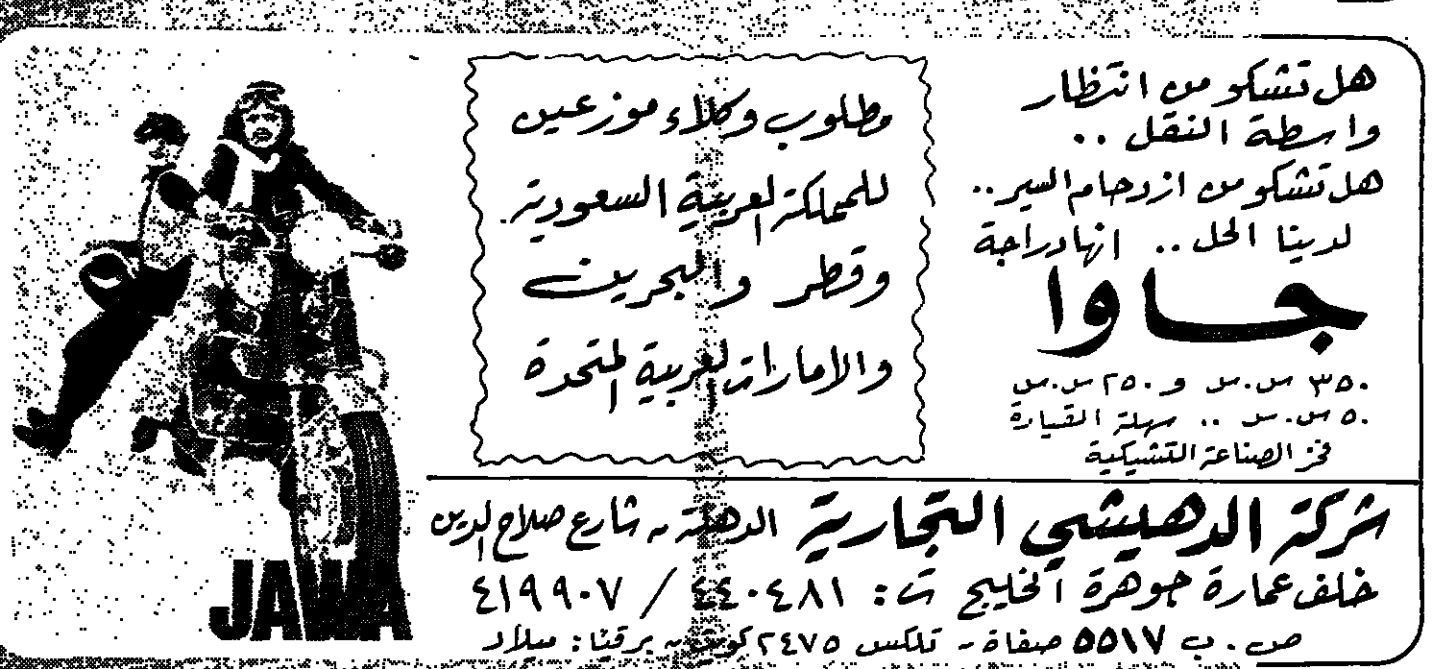 هل تشكو من انتظار
واسطة النقل ..
هل تشكو من ازدحام السير ..
لدينا الحل .. انها دراجة
جاوا
٣٥٠ س.س و ٢٥٠ س.س
٥٠ س.س .. سهلة القيادة
فخر الصناعة التشيكية
مطلوب وكلاء موزعين
للمملكة العربية السعودية
وقطر والبحرين
والامارات العربية المتحدة
شركة الدهيشي التجارية الدهلة - شارع صلاح الدين
خلف عمارة جوهرة الخليج ت: ٤٤٠٤٨١ / ٤١٩٩٠٧
ص.ب ٥٥١٧ صفاة - تلكس ٢٤٧٥ كويت - برقيا: ميلاد
JAWA